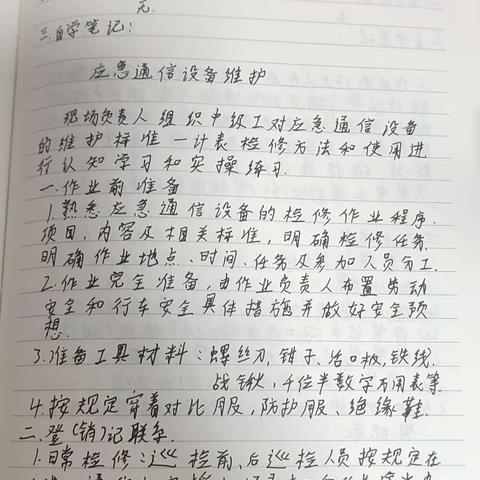 无.
三.自学笔记:
应急通信设备维护
现场负责人组织中级工对应急通信设备
的维护标准一计表检修方法和使用进
行认知学习和实操练习.
一.作业前准备
1.熟悉应急通信设备的检修作业程序.
项目、内容及相关标准,明确检修任务.
明确作业地点、时间、任务及参加人员分工.
2.作业完全准备,由作业负责人布置劳动
安全和行车安全具体措施并做好安全预
想.
3.准备工具材料:螺丝刀,钳子、活口板,铁线.
战锹,千位半数字万用表等
4.按规定穿着对比服,防护服、绝缘鞋.
二.登(销)记联系.
1.日常检修:巡检前、后巡检人员按规定在